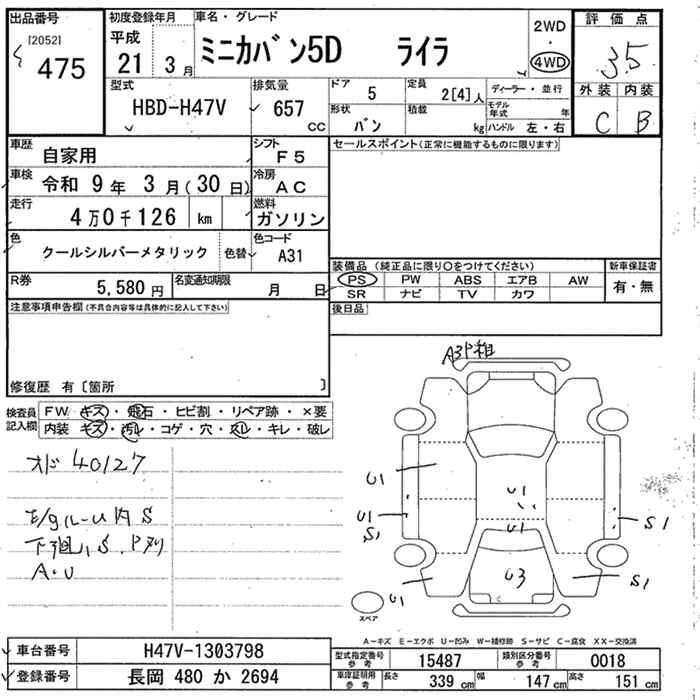 出品番号 [2052] 475
初度登録年月 平成 21 3月
車名・グレード ミニカバン5D ライラ
2WD ・ 4WD
評価点 3.5
外装 内装 C B
型式 HBD-H47V
排気量 657 CC
ドア 5
形状 バン
定員 2[4]人
積載 kg
ディーラー・並行
モデル年式 年
ハンドル 左・右
車歴 自家用
シフト F5
車検 令和 9年 3月(30日)
冷房 AC
走行 4万0千126 km
燃料 ガソリン
色 クールシルバーメタリック 色替
色コード A31
R券 5,580円
名変通知期限 月 日
セールスポイント(正常に機能するものに限ります)
装備品 (純正品に限り○をつけてください)
PS PW ABS エアB AW
SR ナビ TV カワ
新車保証書 有・無
後日品
注意事項申告欄(不具合内容等は具体的に記入して下さい)
修復歴 有〔箇所 〕
検査員記入欄
FW キズ・飛石・ヒビ割・リペア跡・×要
内装 キズ・汚レ・コゲ・穴・スレ・キレ・破レ
オド 40127
E/gルーム内 S
下廻り、S.Pヌリ
A・U
U1
U1
S1
U1
U1
U1
U3
S1
S1
スペア
A－キズ E－エクボ U－凹み W－補修跡 S－サビ C－腐食 XX－交換済
車台番号 H47V-1303798
登録番号 長岡 480 か 2694
型式指定番号 参考 15487
類別区分番号 参考 0018
車庫証明用 参考 長さ 339 cm 幅 147 cm 高さ 151 cm